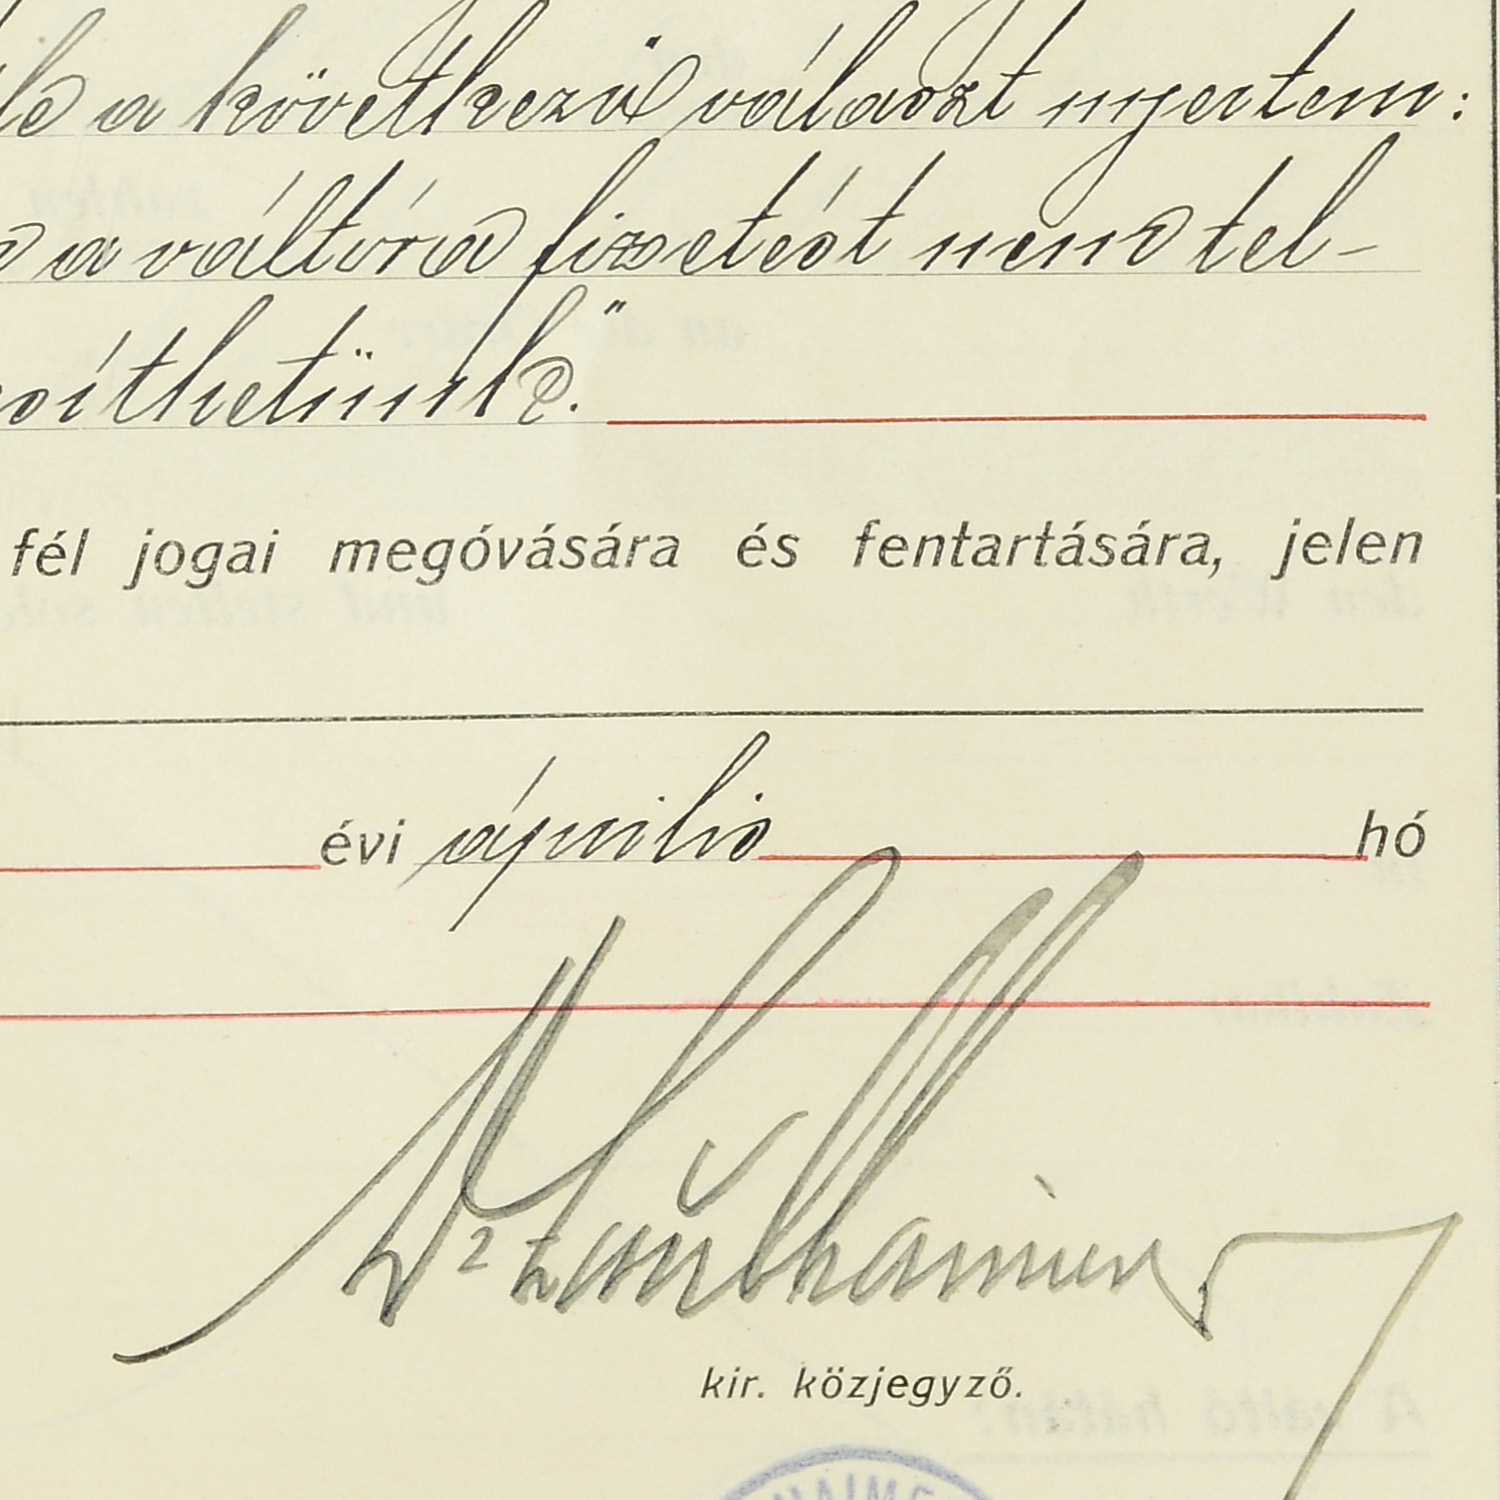 a következő választ nyertem:
a váltóra fizetést nem tel-
síthetünk."
fél jogai megóvására és fentartására, jelen
évi április hó
kir. közjegyző.